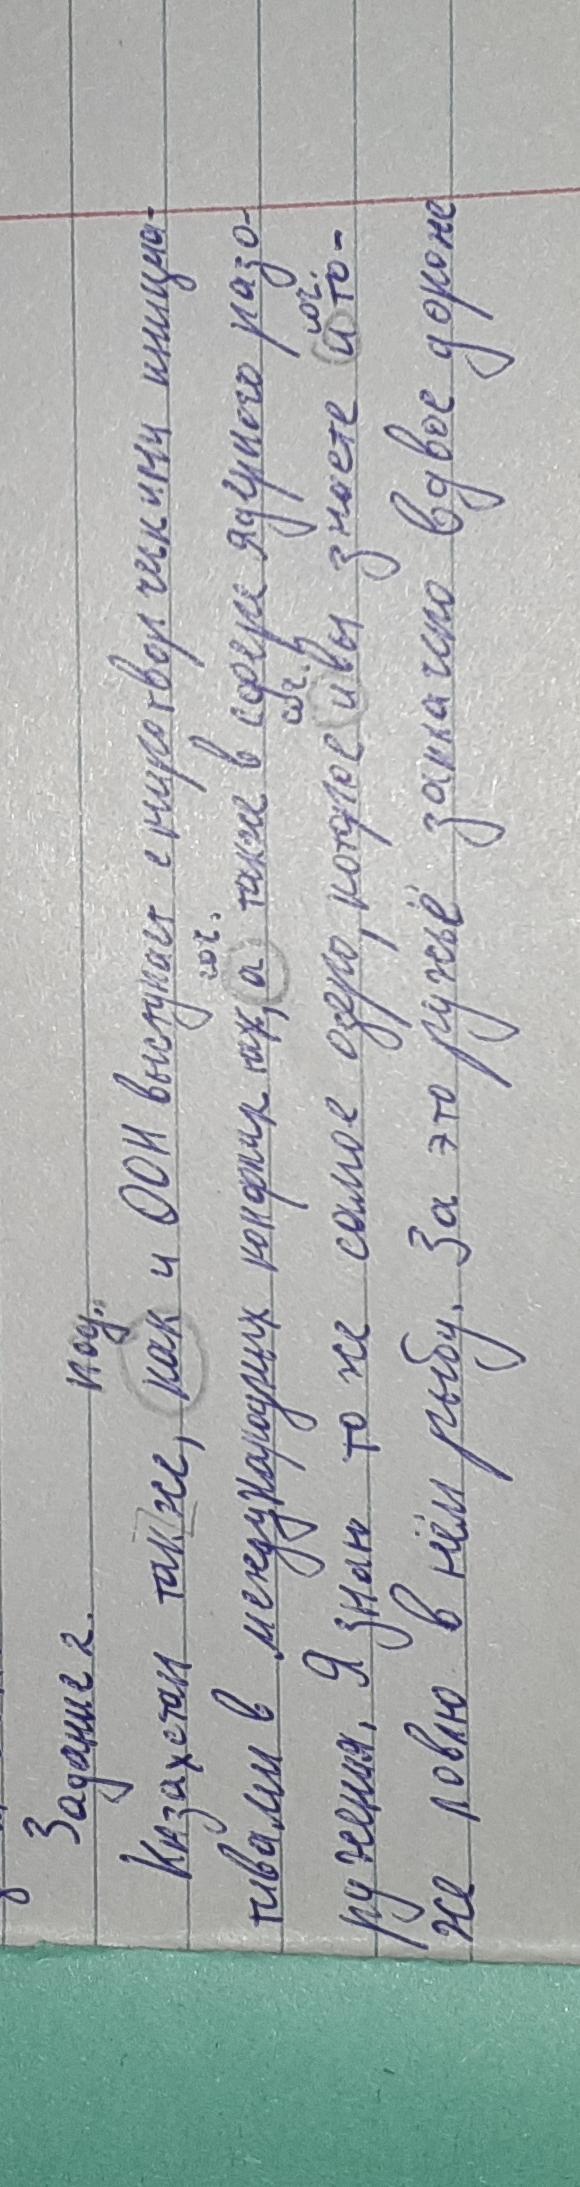 Задание 2.
под.
Казахстан так же, как и ООН выступает с миротворческими инициа-
соч.
тивами в международных конфликтах, а также в сфере ядерного разо-
соч. соч.
ружения. Я знаю то же самое озеро, которое и вы знаете и то-
же ловлю в нём рыбу. За это ружьё заплачено вдвое дороже